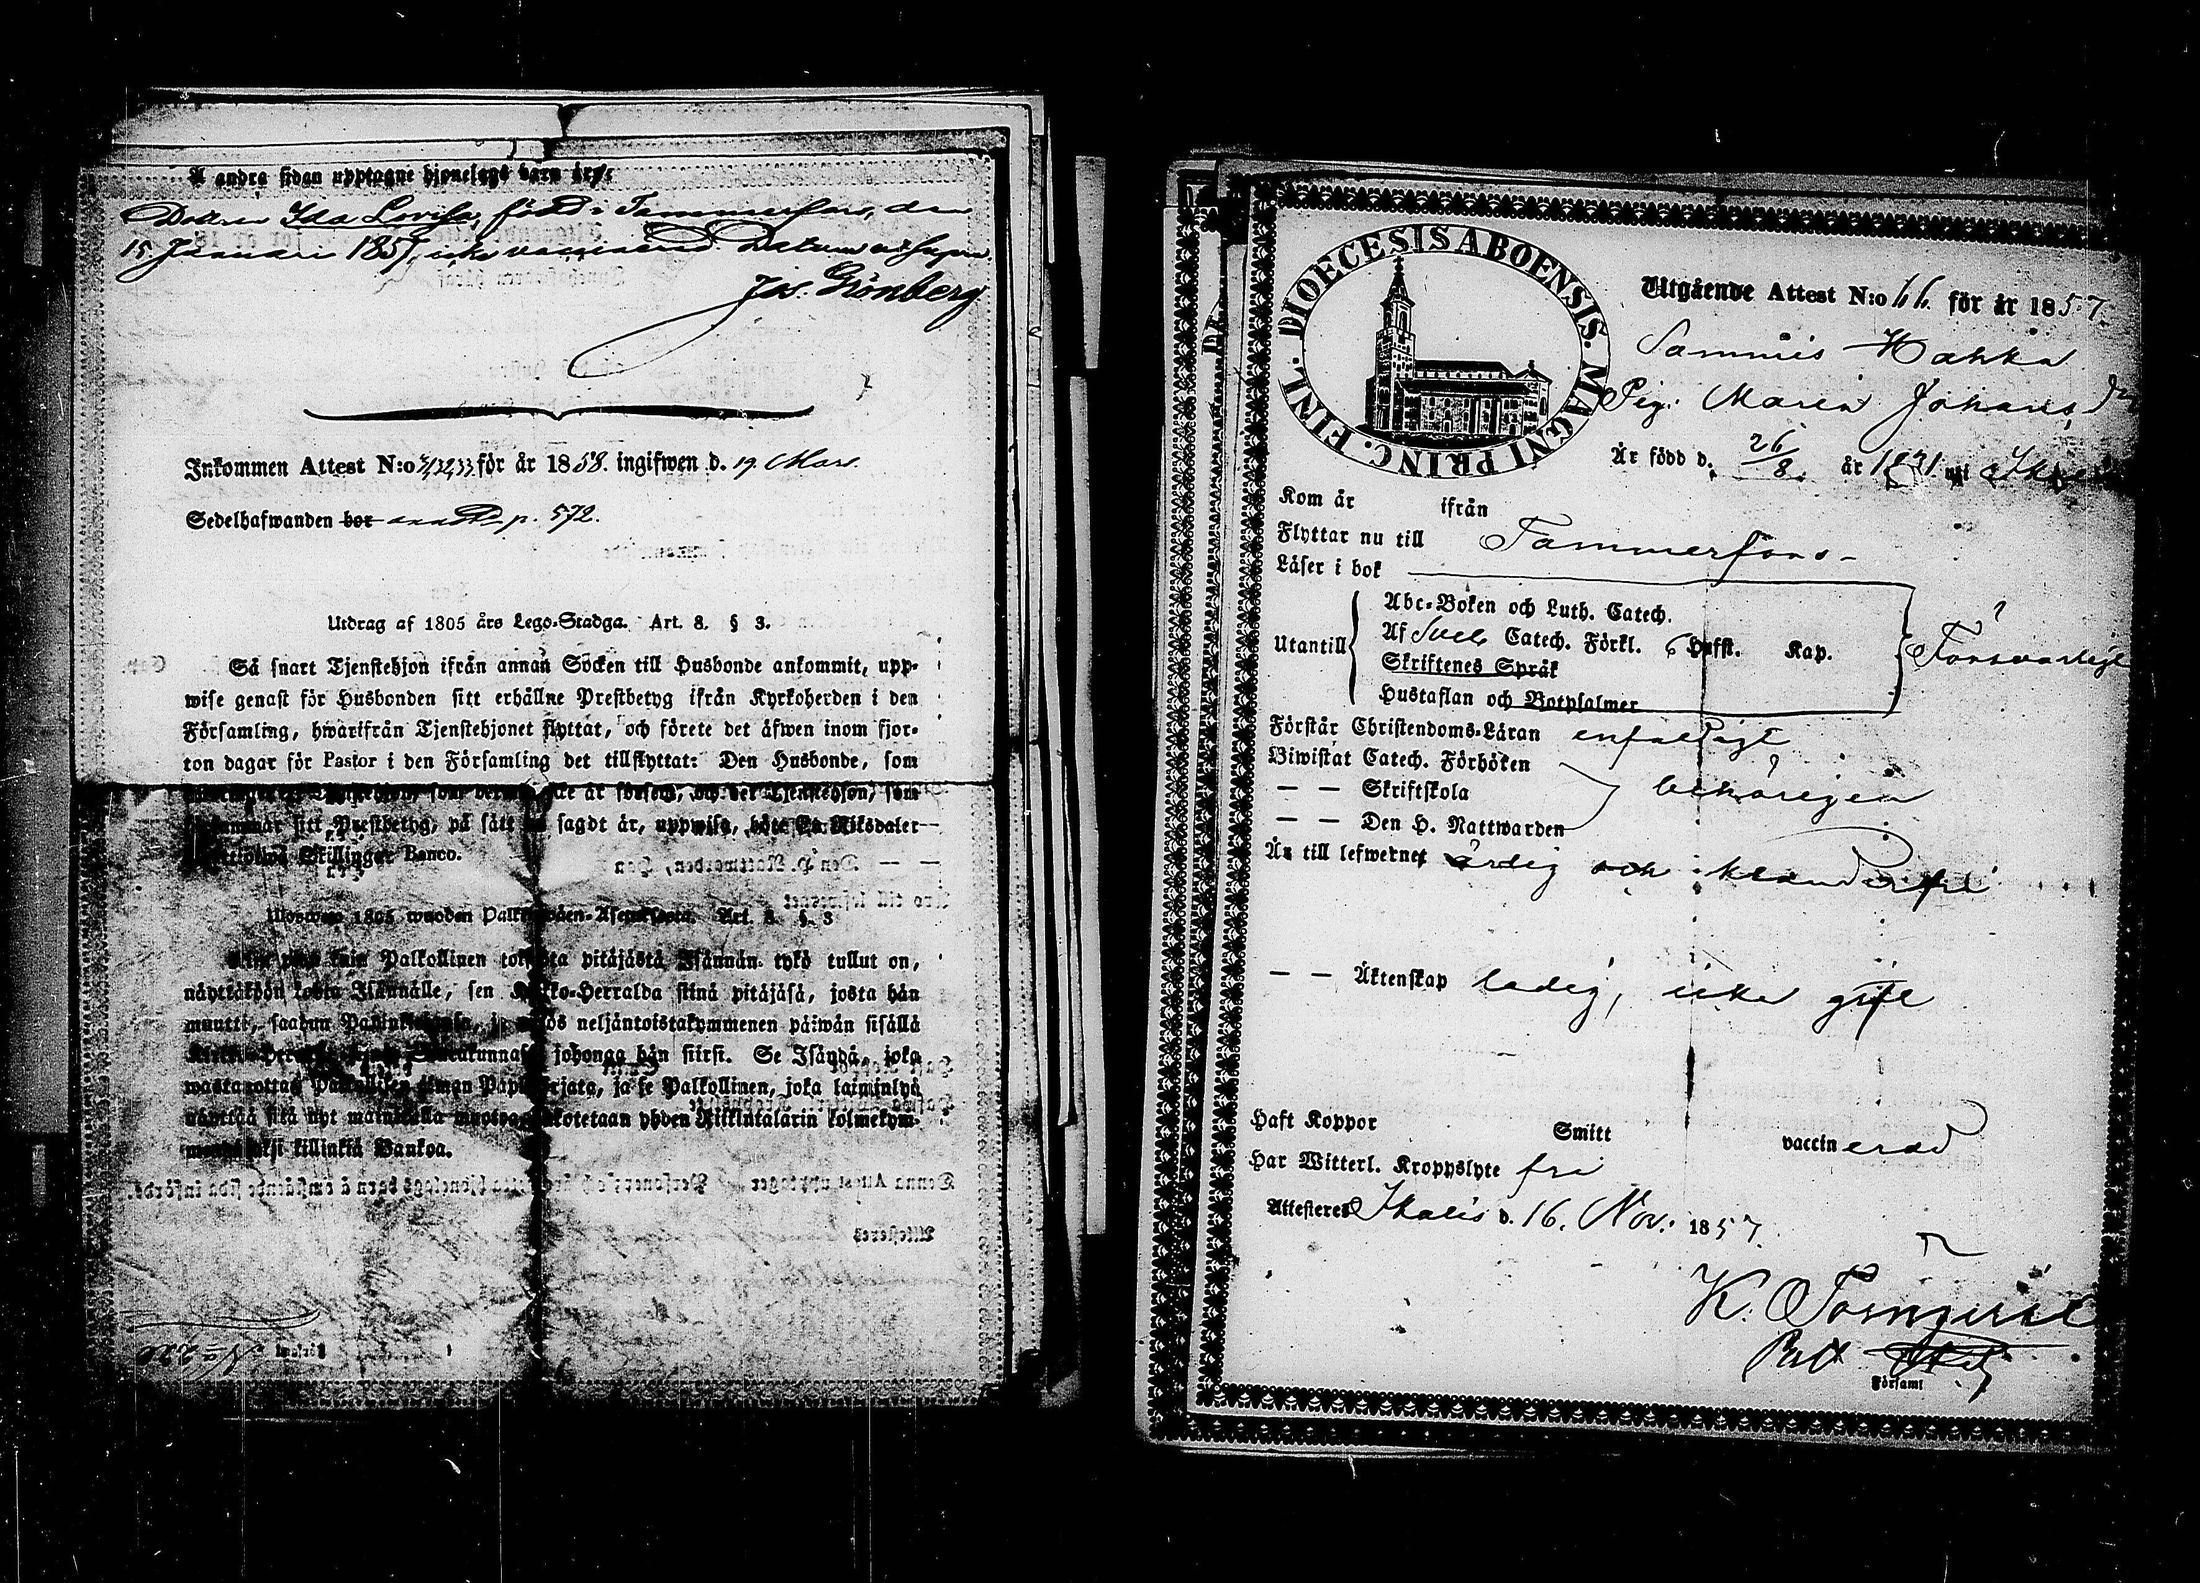 Å andra sidan upptagne hjonelags barn äro:
Dottren Ida Lovisa, född i Tammerfors, den
15 Januari 1857, icke vaccinerad Datum ut supra.
Jos. Grönberg
Inkommen Attest N:o 31,32,33 för år 1858. ingifwen d. 19. Mars.
Sedelhafwanden bor annot. p. 572.
Utdrag af 1805 års Lego-Stadga. Art. 8. § 3.
Så snart Tjenstehjon ifrån annan Socken till Husbonde ankommit, upp-
wise genast för Husbonden sitt erhållne Prestbetyg ifrån Kyrkoherden i den
Församling, hwarifrån Tjenstehjonet flyttat, och förete det äfwen inom fjor-
ton dagar för Pastor i den Församling det tillflyttat: Den Husbonde, som
år förfedt, och det Tjenstehjon, som
sitt Prestbetyg, på sätt sagdt är, uppwisa, böte En Riksdaler
Skillingar Banco.
1805 wuoden Art. 8. § 3
kuin Palkollinen toisesta pitäjästä Isännän tykö tullut on,
näyttäköön kohta Isännälle, sen Kirkko-Herralda siinä pitäjäsä, josta hän
muutti, saadun neljäntoistakymmenen päiwän sisällä
johonga hän siirsi. Se Isändä, joka
wastanottaa Palkollisen ilman Papinkirjata, ja se Palkollinen, joka laiminlyö
näyttää sitä nyt yhden Riikintalarin kolmekym-
killinkiä Bankoa.
DIOECESIS ABOENSIS. MAGNI PRINC. FINL.
Utgående Attest N:o 66. för år 1857.
Sammis Hahka
Pig. Maria Johans dr
Är född d. 26/8. år 1831 uti
Kom år ifrån
Flyttar nu till Tammerfors
Läser i bok
Abc-Boken och Luth. Catech.
Utantill Af Sveb. Catech. Förkl. 6 Hufst. Kap. Försvarligt
Skriftenes Språk
Hustaflan och Botpsalmer
Förstår Christendoms-Läran enfaldigt
Biwistat Catech. Förhören
— — Skriftskola behörigen
— — Den H. Nattwarden
Är till lefwernet ärlig och klanderfri
— — Äktenskap ledig, icke gift
Haft Koppor Smitt vaccinerad
Har Witterl. Kroppslyte fri
Attesteres Ikalis d. 16. Nov. 1857.
K. Törnqvist
Församl